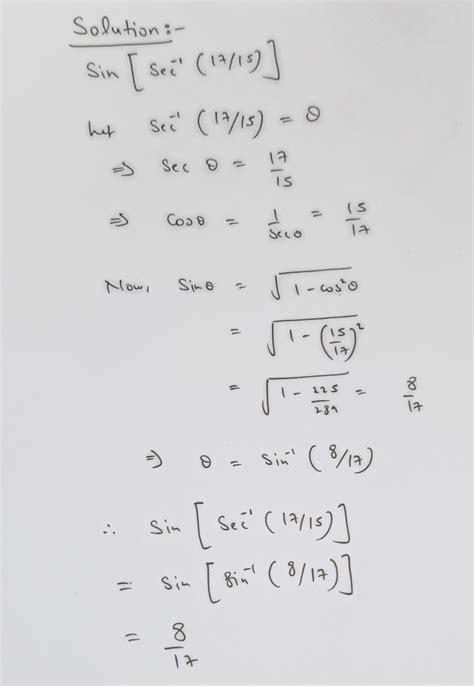 Solution:-
Sin [ Sec⁻¹ (17/15) ]
Let Sec⁻¹ (17/15) = θ
⇒ Sec θ = 17/15
⇒ Cosθ = 1/Secθ = 15/17
Now, Sinθ = √(1 - cos²θ)
= √(1 - (15/17)²)
= √(1 - 225/289) = 8/17
⇒ θ = Sin⁻¹ (8/17)
∴ Sin [ Sec⁻¹ (17/15) ]
= Sin [ Sin⁻¹ (8/17) ]
= 8/17